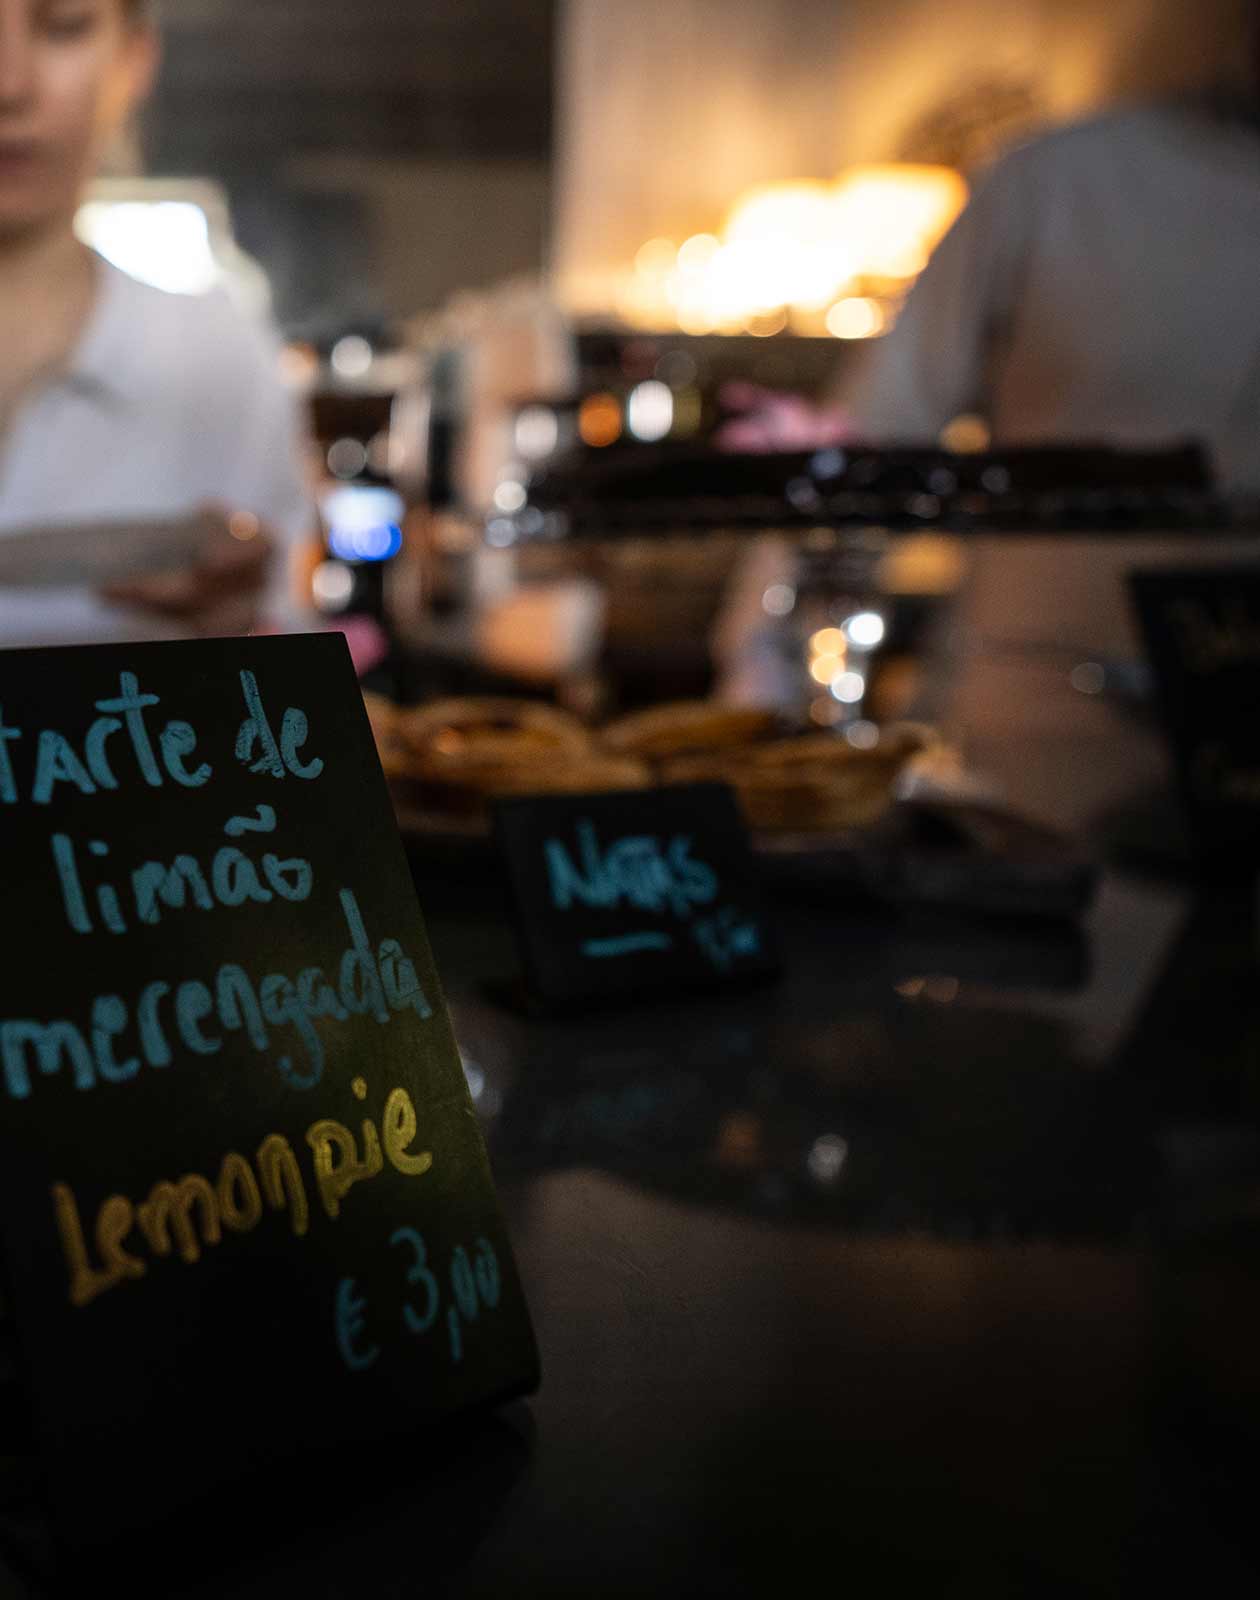 tarte de
limão
merengada
Lemon pie
€ 3,00
Natas